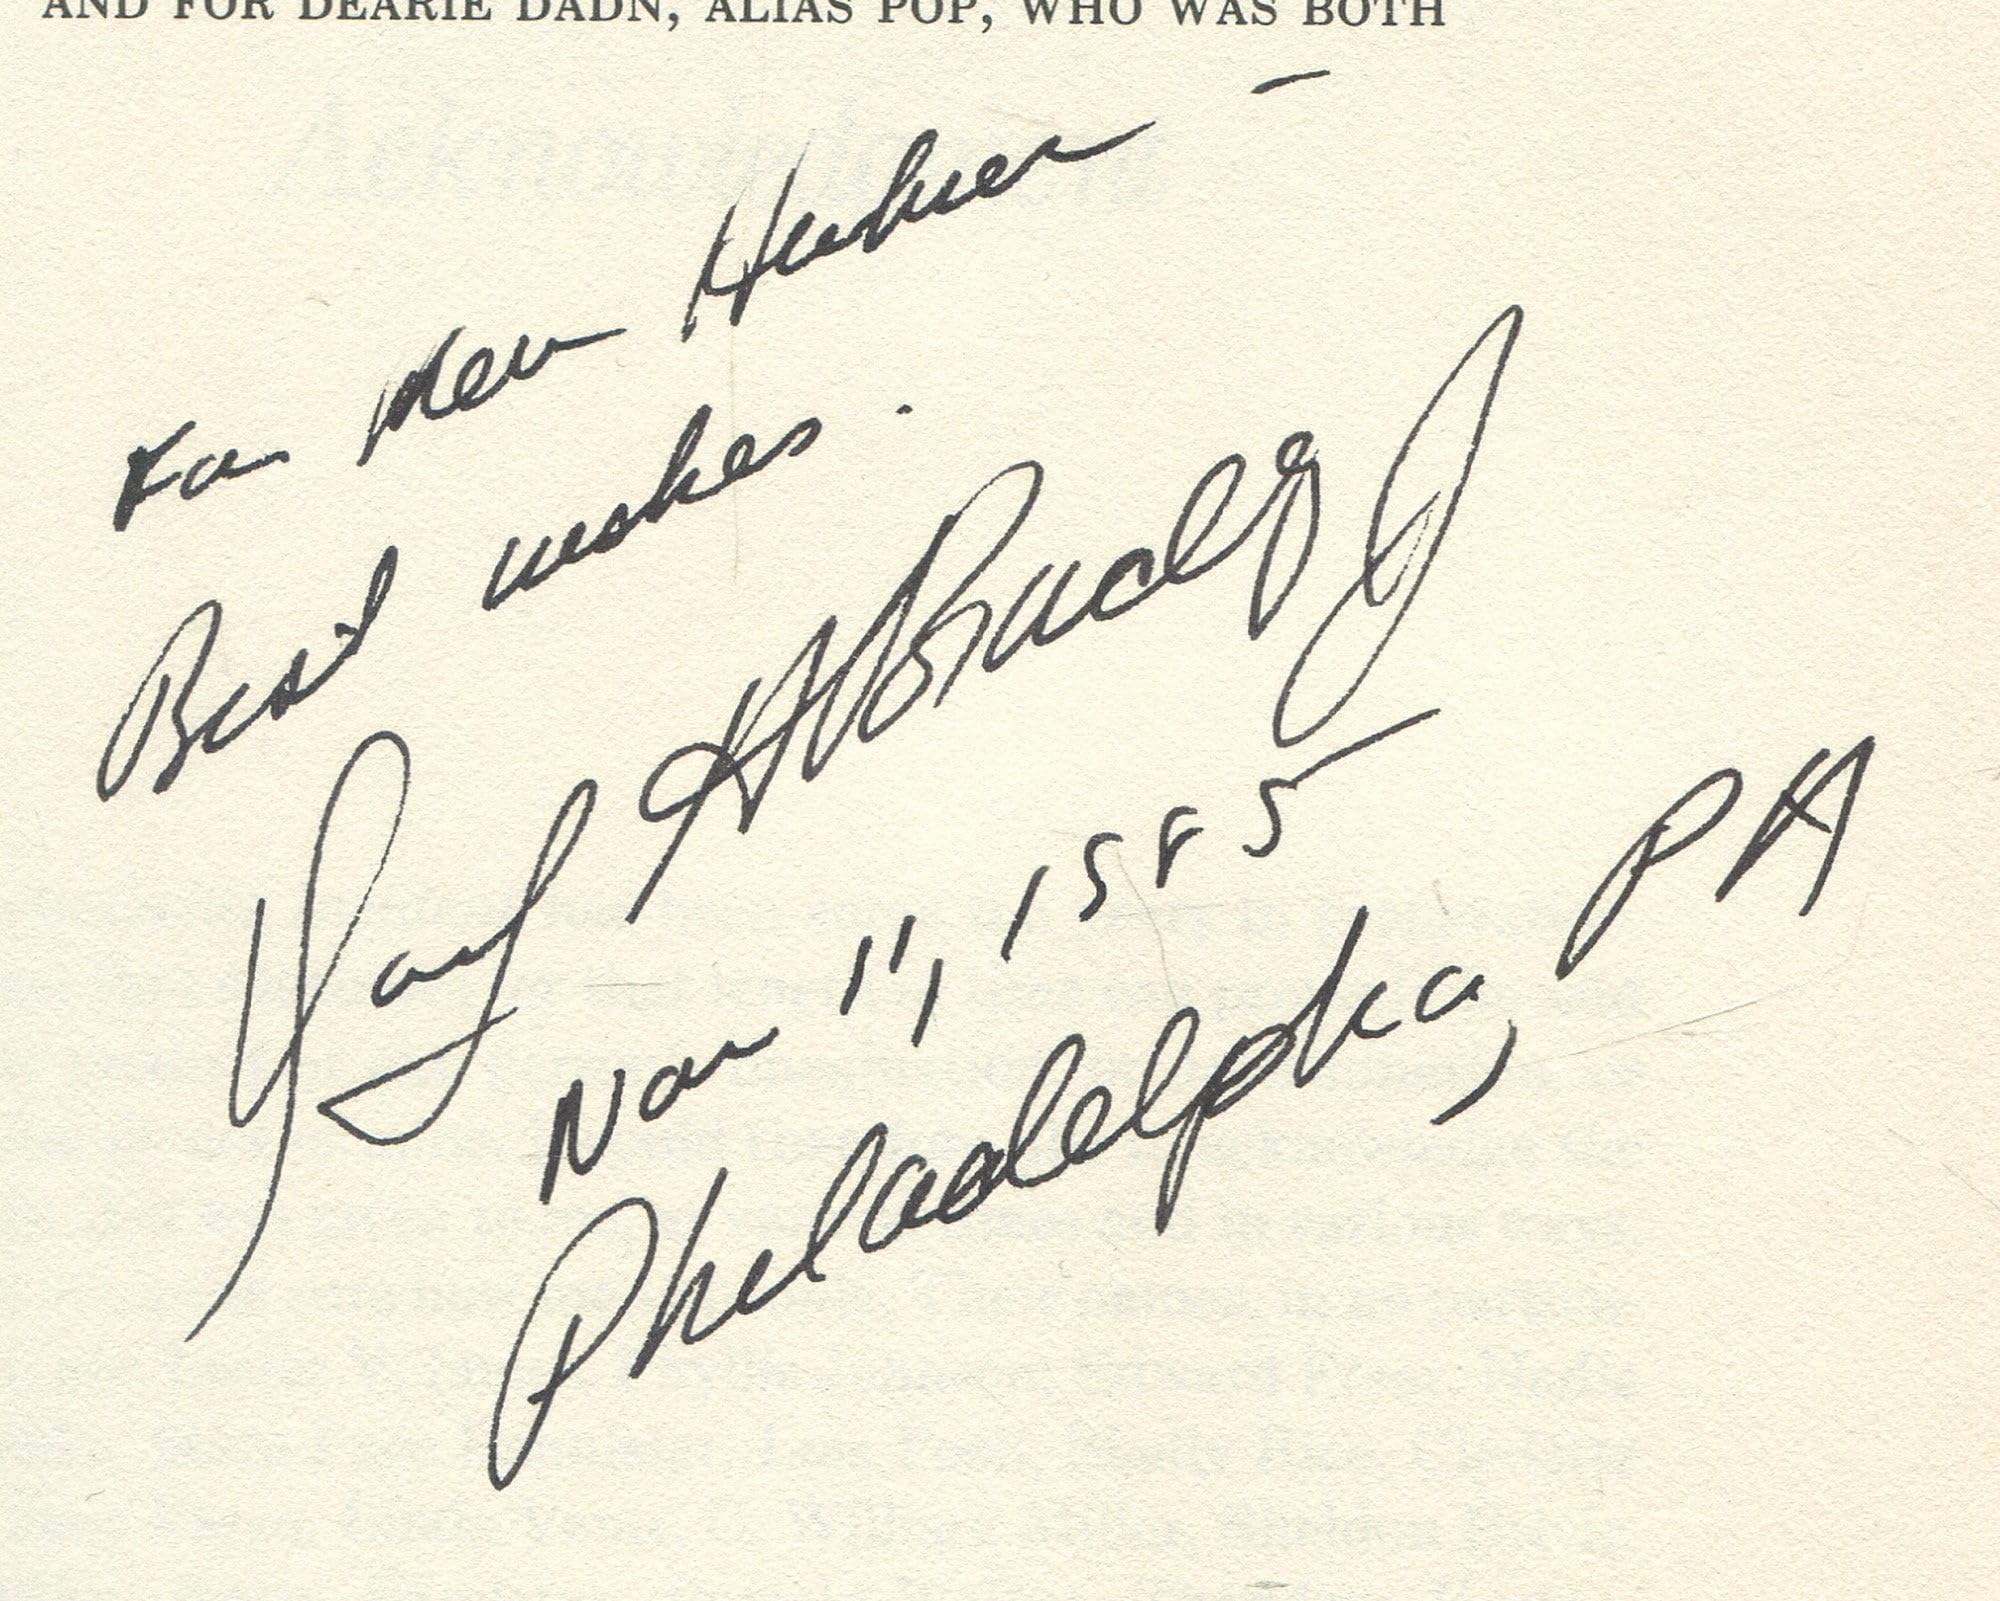 AND FOR DEARIE DADN, ALIAS POP, WHO WAS BOTH
For
Best wishes.
David H Bradley Jr
Nov 11, 1985
Philadelphia, PA